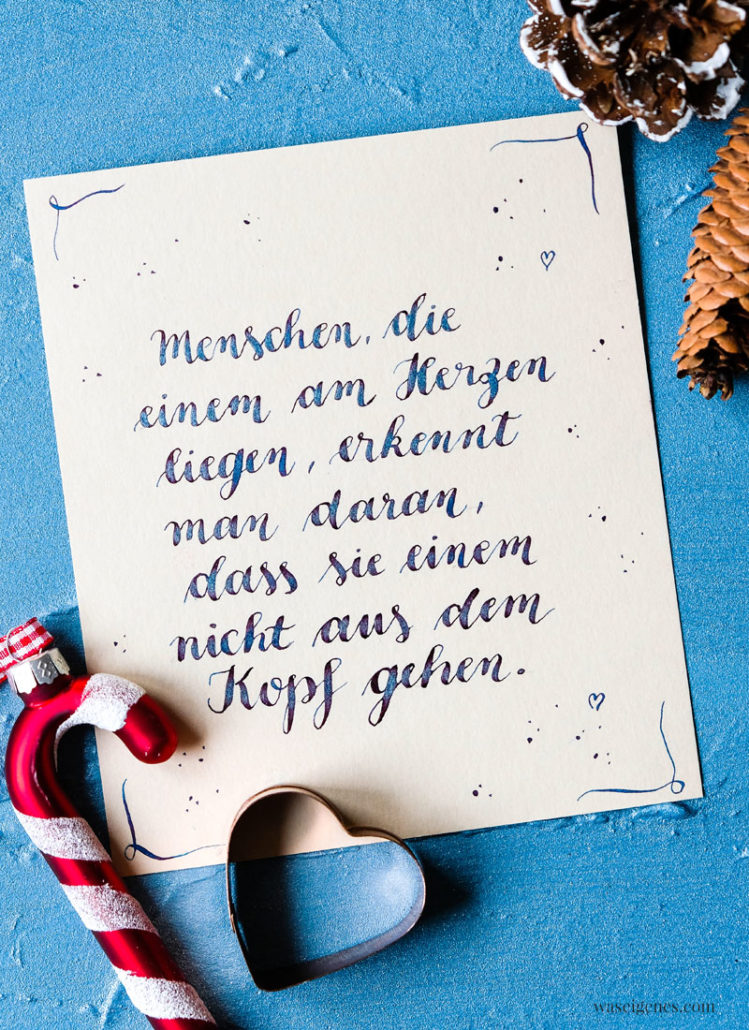 Menschen, die
einem am Herzen
liegen, erkennt
man daran,
dass sie einem
nicht aus dem
Kopf gehen.
waseigenes.com